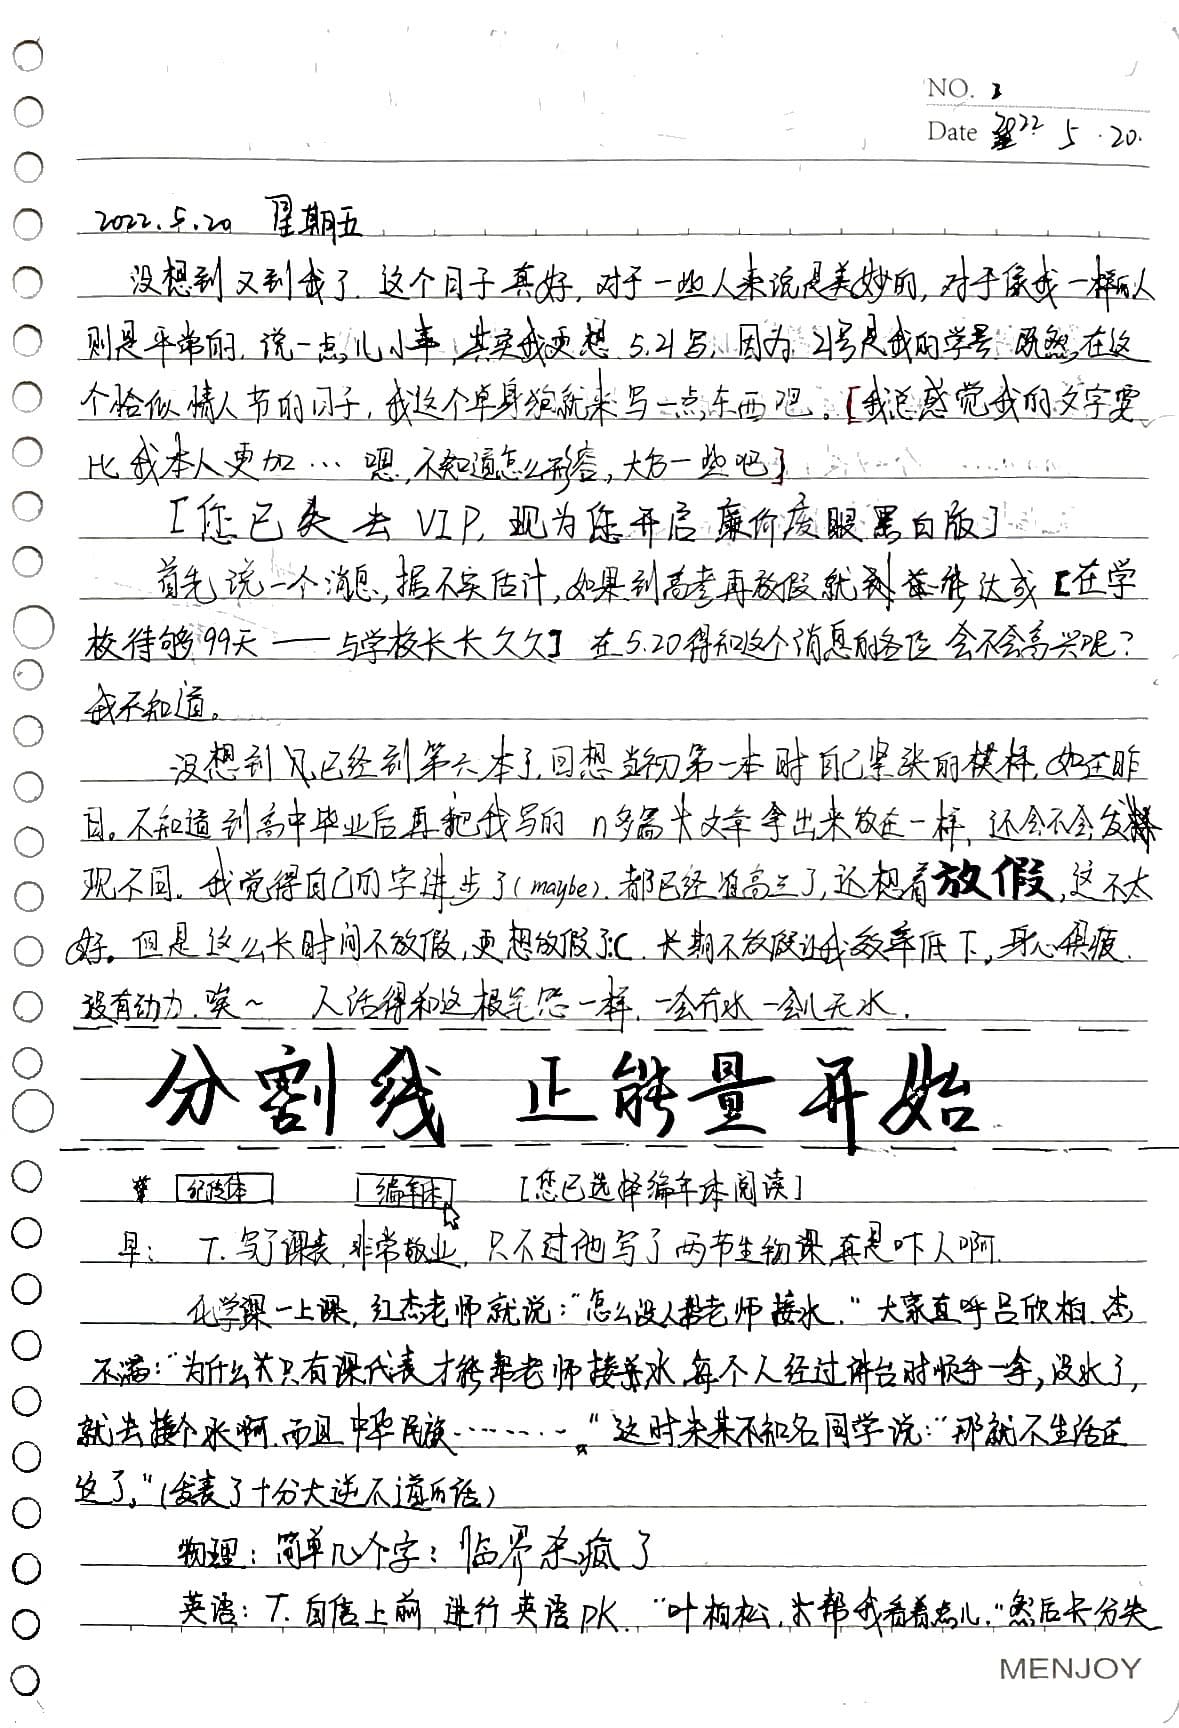 NO. 3
Date 2022 5 · 20.
2022.5.20 星期五
没想到又到我了. 这个日子真好, 对于一些人来说是美妙的, 对于像我一样的人
则是平常的. 说一点儿小事, 其实我更想 5.21写, 因为 21号是我的学号 既然在这
个恰似情人节的日子, 我这个单身狼就来写一点东西吧。[我总感觉我的文字要
比我本人更加… 嗯, 不知道怎么形容, 大方一些吧]
[您已失去 VIP, 现为您开启廉价废眼黑白版]
首先说一个消息, 据不实估计, 如果到高考再放假就能达成[在学
校待够99天——与学校长长久久] 在5.20得知这个消息的各位会不会高兴呢?
我不知道。
没想到已经到第六本了, 回想当初第一本时自己紧张的模样, 如在昨
日。不知道到高中毕业后再把我写的 n多篇长文章拿出来放在一样, 还会不会发
现不同。我觉得自己的字进步了(maybe). 都已经准高三了, 还想着放假, 这不太
好。但是这么长时间不放假, 更想放假了:(. 长期不放假让我效率低下, 身心俱疲.
没有动力. 唉~ 人活得和这根笔芯一样, 一会有水一会儿无水.
分割线 正能量开始
纪传体 编年体 [您已选择编年体阅读]
早: T. 写了课表, 非常敬业, 只不过他写了两节生物课, 真是吓人啊.
化学课一上课, 红杰老师就说:"怎么没人帮老师接水." 大家直呼吕欣柏. 杰
不满:"为什么只有课代表才能帮老师接水, 每个人经过讲台时顺手一拿, 没水了,
就去接个水啊. 而且中华民族………。"这时某不知名同学说:"那就不生活在
这了。"(发表了十分大逆不道的话)
物理: 简单几个字: 临界杀疯了
英语: T. 自信上前 进行英语PK. "叶柏松, 帮我看着点儿." 然后大分失
MENJOY